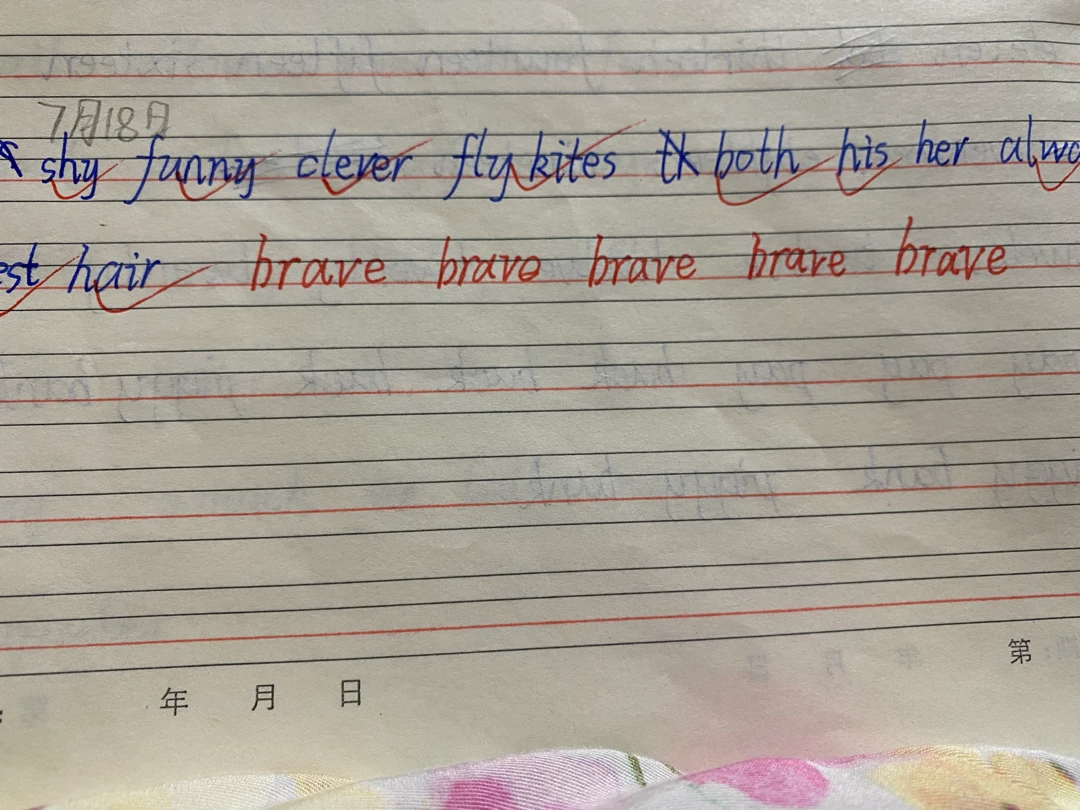 7月18日
shy funny clever fly kites both his her
hair brave brave brave brave brave
年 月 日 第